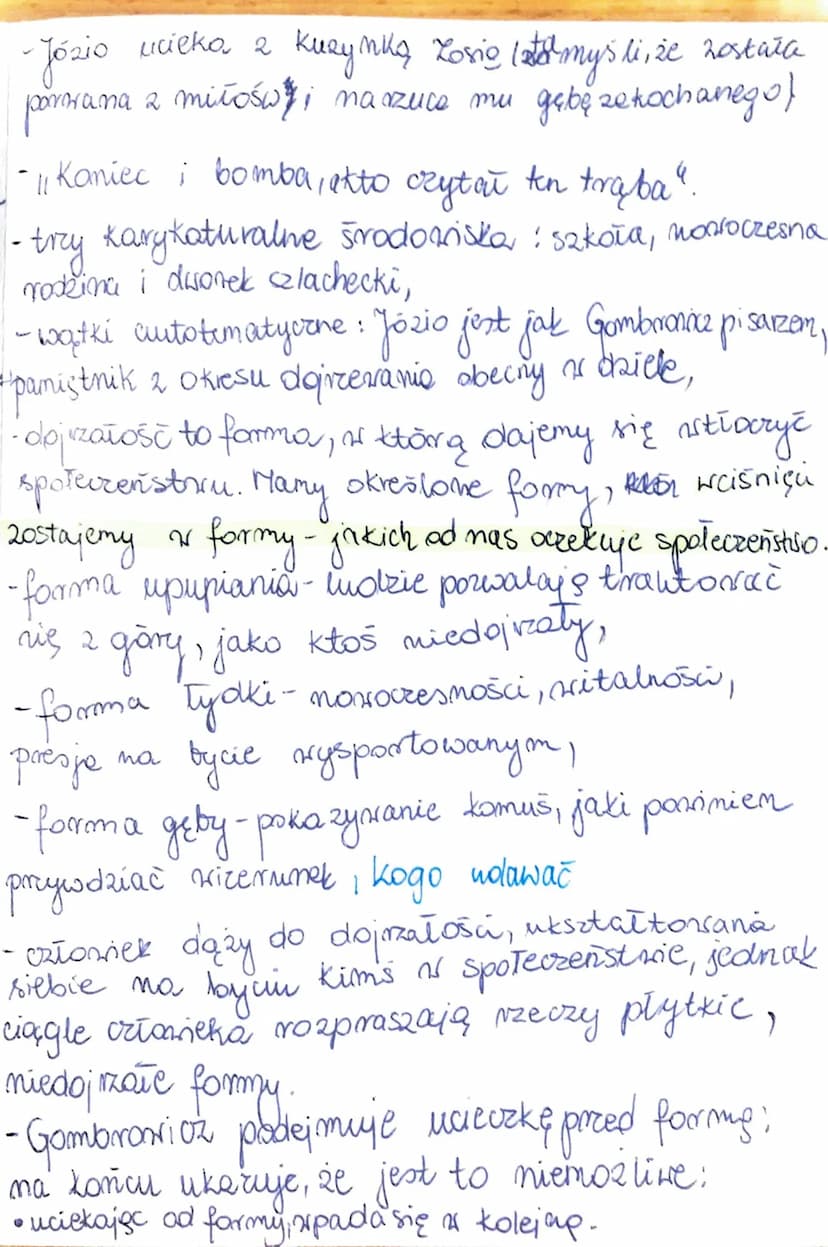 - Józio ucieka z kuzynką Zosią (ta myśli, że została
porwana z miłości i narzuca mu gębę zakochanego)
- "Koniec i bomba, a kto czytał ten trąba".
- trzy karykaturalne środowiska : szkoła, nowoczesna
rodzina i dworek szlachecki,
- wątki autotematyczne : Józio jest jak Gombrowicz pisarzem,
pamiętnik z okresu dojrzewania obecny w dziele,
- dojrzałość to forma, w którą dajemy się wtłoczyć
społeczeństwu. Mamy określone formy, wciśnięci
zostajemy w formy - jakich od nas oczekuje społeczeństwo.
- forma upupiania - ludzie pozwalają traktować
się z góry, jako ktoś niedojrzały,
- forma łydki - nowoczesności, witalności,
presja na bycie wysportowanym,
- forma gęby - pokazywanie komuś, jaki powinien
przywdziać wizerunek, kogo udawać
- człowiek dąży do dojrzałości, ukształtowania
siebie na byciu kimś w społeczeństwie, jednak
ciągle człowieka rozpraszają rzeczy płytkie,
niedojrzałe formy.
- Gombrowicz podejmuje ucieczkę przed formą;
na końcu ukazuje, że jest to niemożliwe:
• uciekając od formy, wpada się w kolejną.